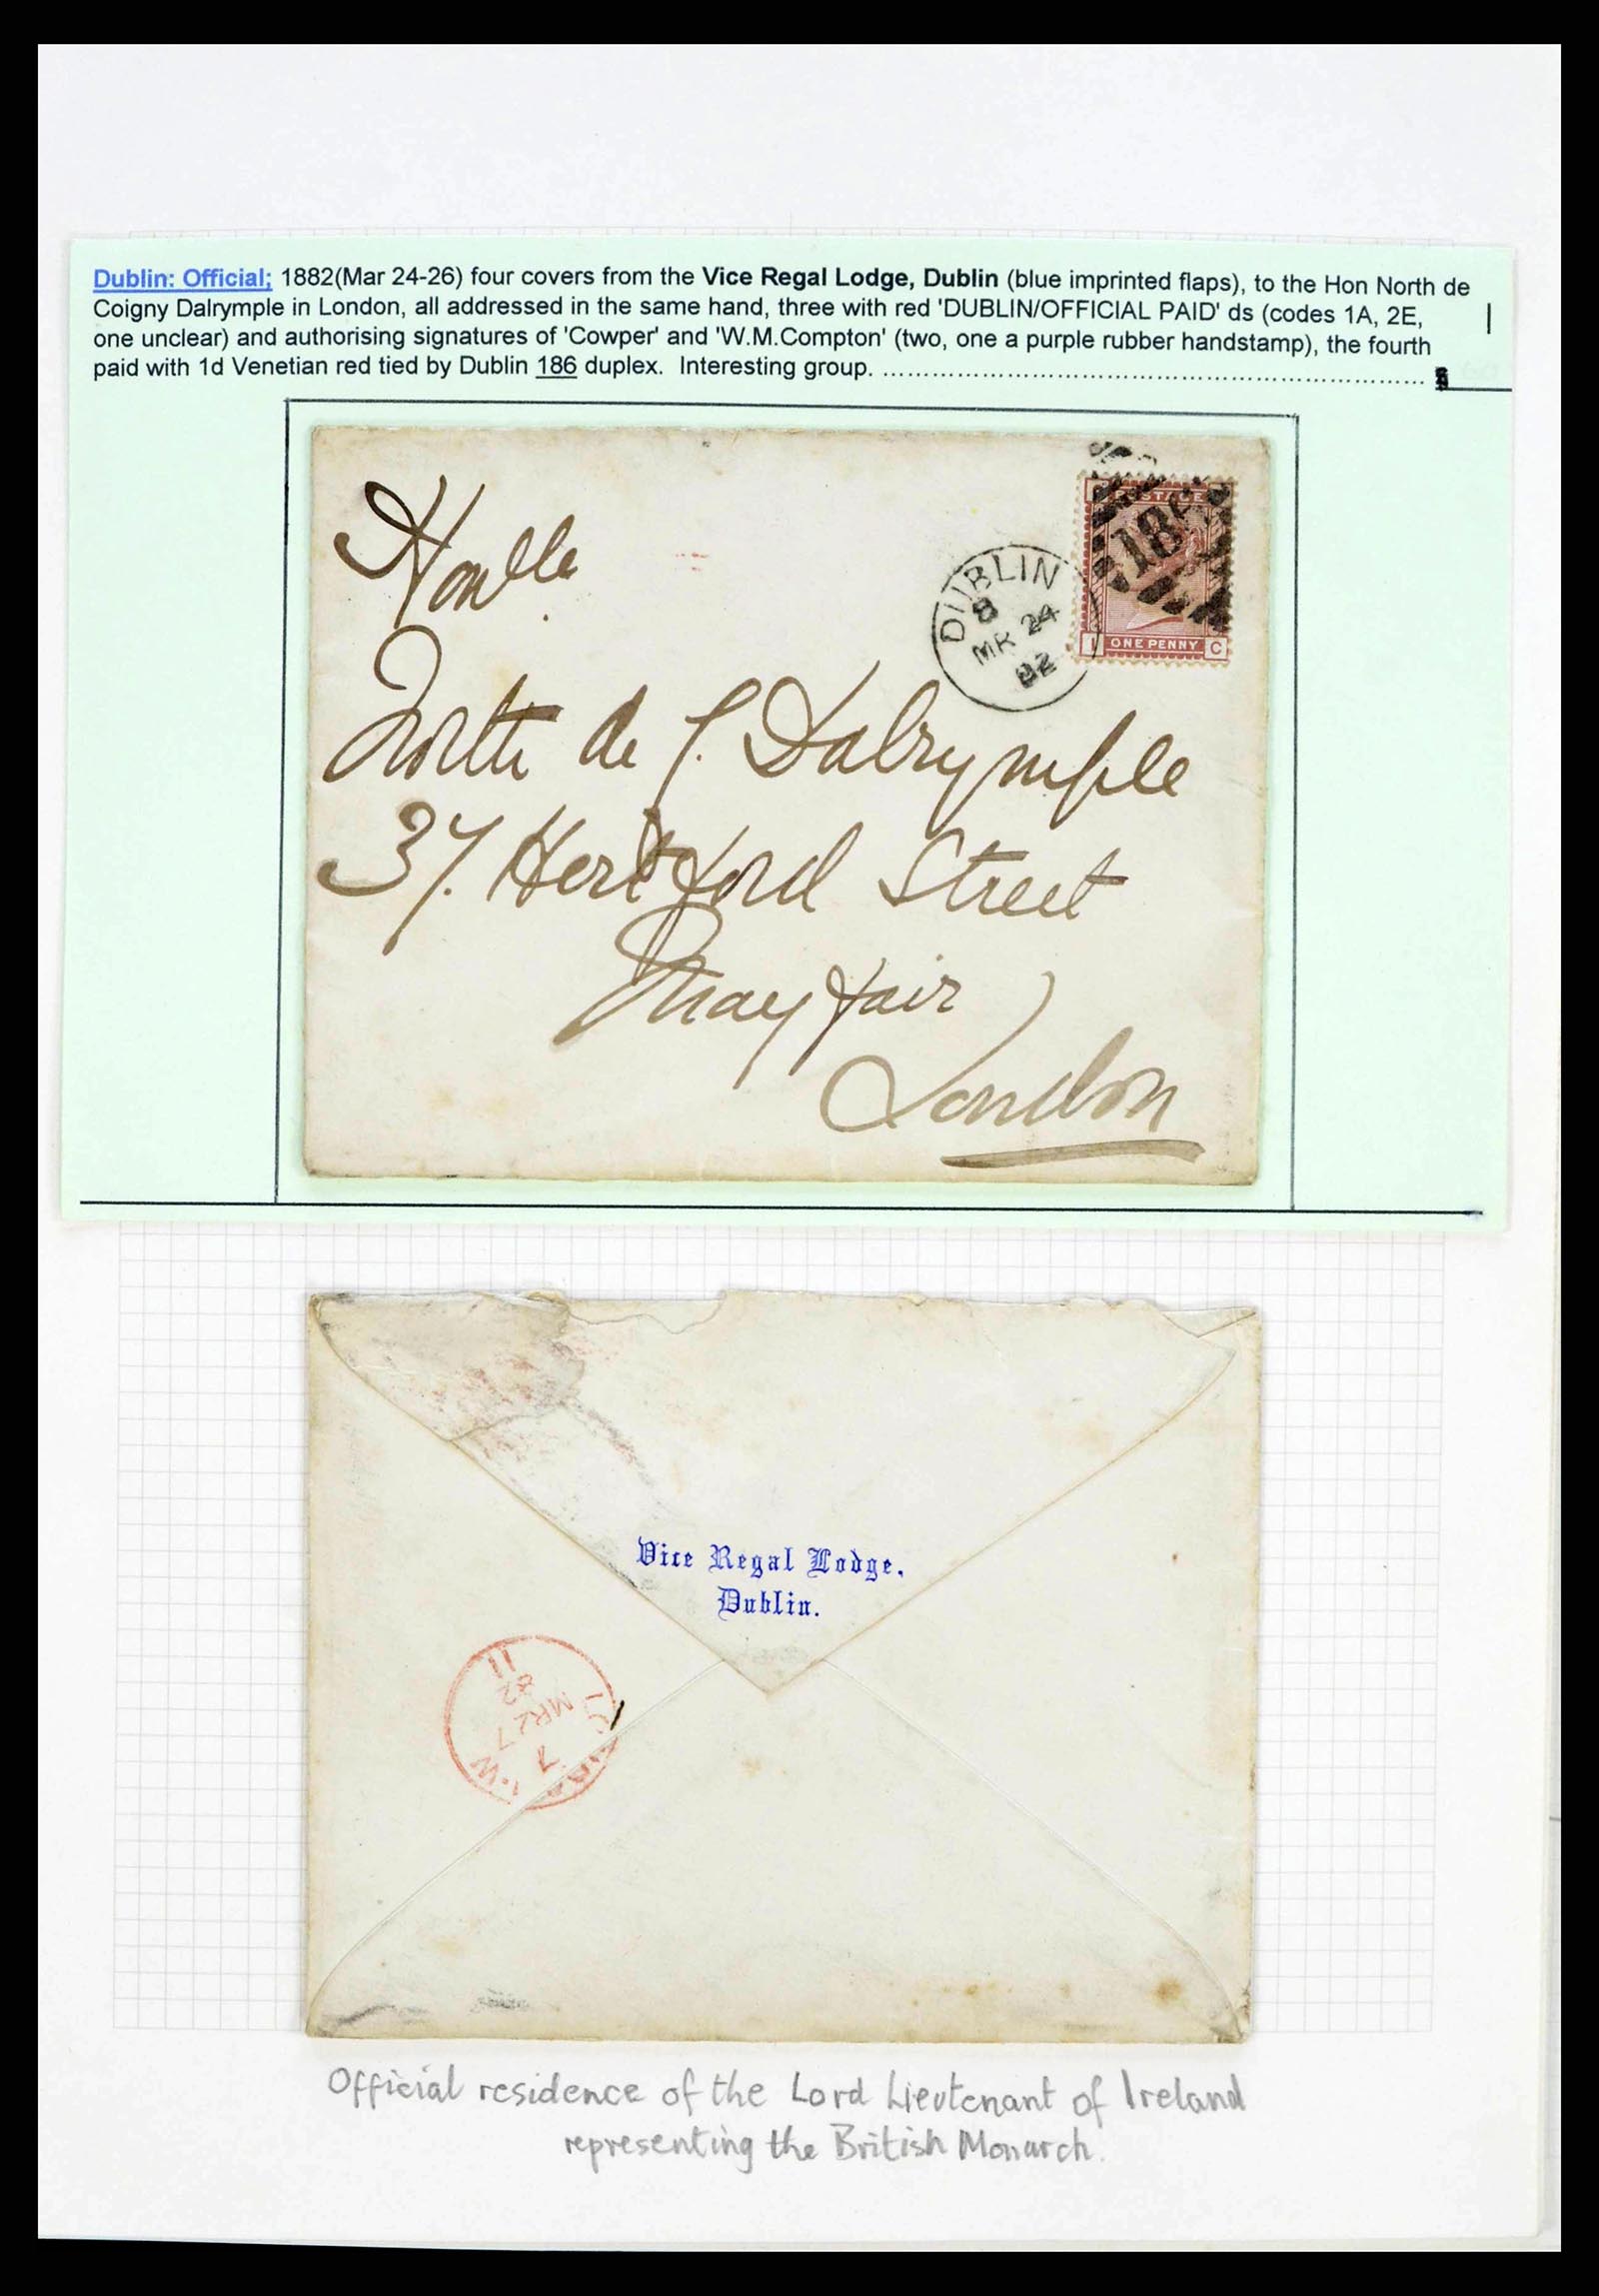 Dublin: Official; 1882(Mar 24-26) four covers from the Vice Regal Lodge, Dublin (blue imprinted flaps), to the Hon North de
Coigny Dalrymple in London, all addressed in the same hand, three with red 'DUBLIN/OFFICIAL PAID' ds (codes 1A, 2E,
one unclear) and authorising signatures of 'Cowper' and 'W.M.Compton' (two, one a purple rubber handstamp), the fourth
paid with 1d Venetian red tied by Dublin 186 duplex. Interesting group.
POSTAGE
186
ONE PENNY
I C
DUBLIN
8
MR 24
82
Honble
North de C. Dalrymple
37. Hertford Street
May fair
London
Vice Regal Lodge,
Dublin.
7
MR27
82
11
Official residence of the Lord Lieutenant of Ireland
representing the British Monarch.